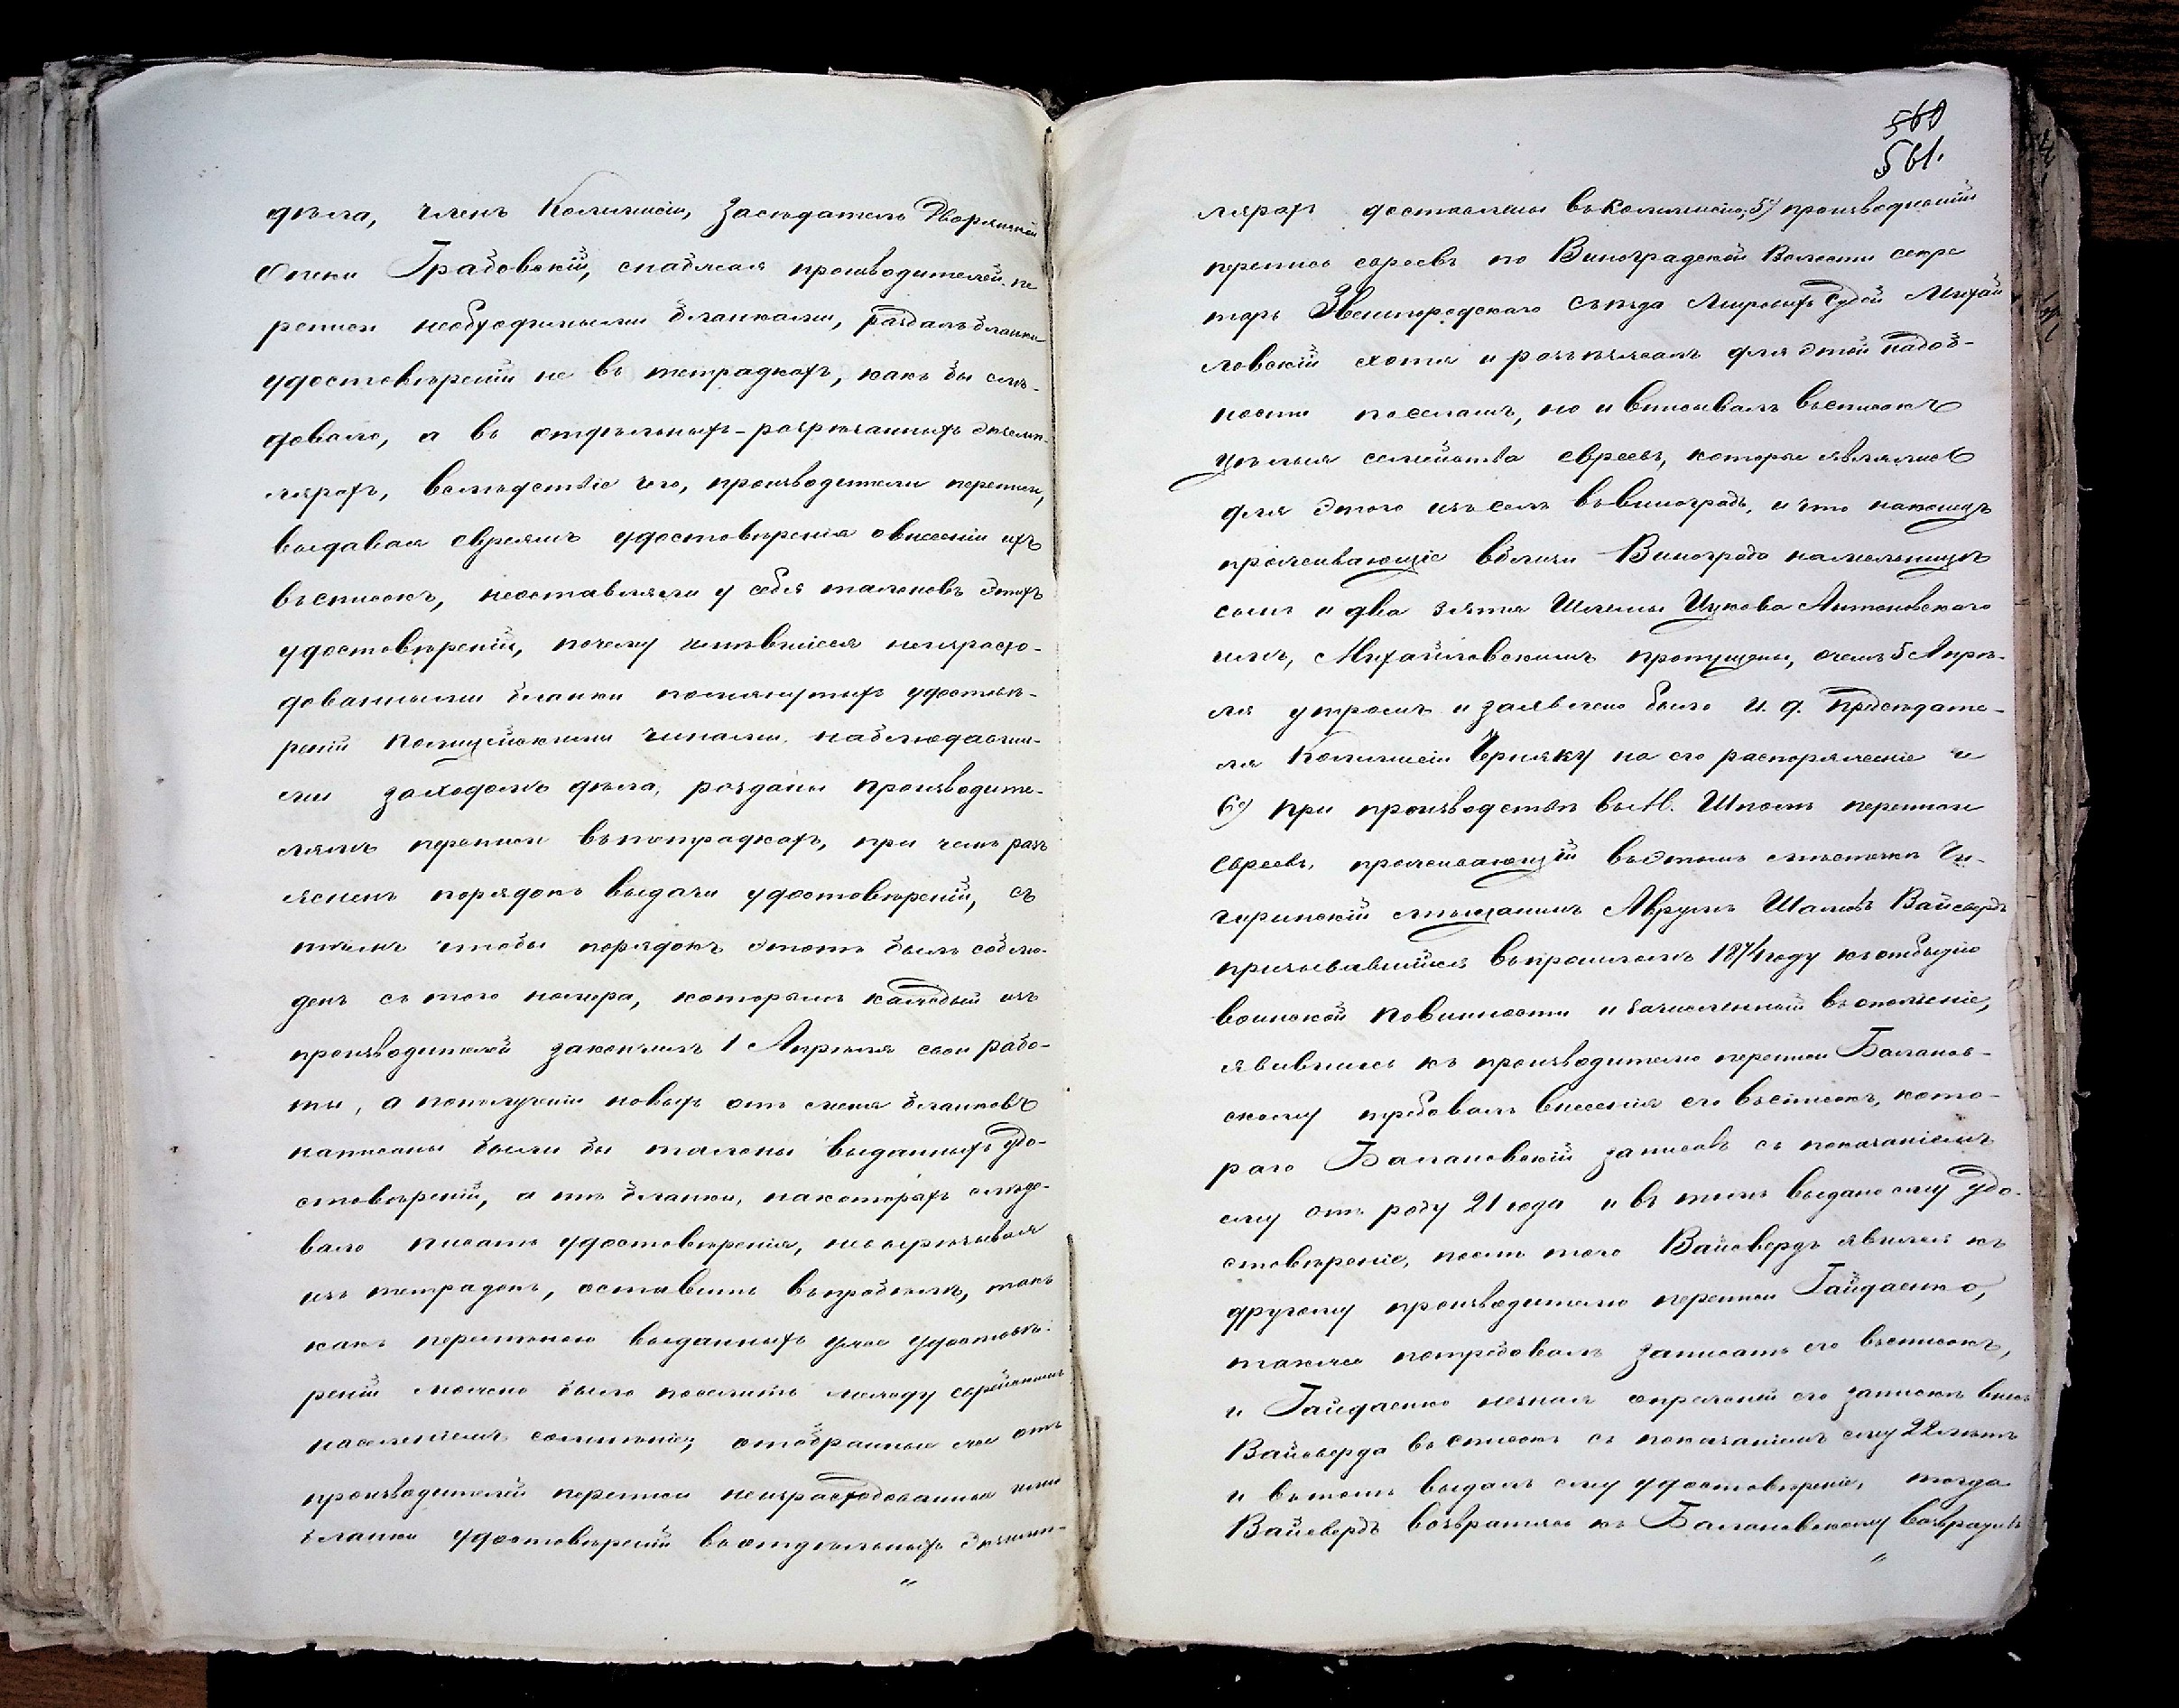 дѣла, членъ Коммисіи, Засѣдатель Дворянской
Опеки Грабовскій, снабжая производителей пе
реписи необходимыми бланками, раздалъ бланки
удостовѣреній не въ тетрадкахъ, какъ бы слѣ-
довало, а въ отдѣльныхъ-разрѣзанныхъ экзем-
лярахъ, вслѣдствіе чего, производители переписи,
выдавая евреямъ удостовѣренія о внесеніи ихъ
въ списокъ, неоставляли у себя талоновъ этихъ
удостовѣреній, почему имѣвшіеся неизрасхо-
дованными бланки помянутыхъ удостовѣ-
реній Полицейскими чинами, наблюдавши-
ми заходомъ дѣла, розданы производите-
лямъ переписи въ тетрадкахъ, при чемъ разъ
ясненъ порядокъ выдачи удостовѣреній, съ
тѣмъ чтобы порядокъ этотъ былъ соблю-
денъ съ того номера, которымъ каждый изъ
производителей закончилъ 1 Апрѣля свои рабо-
ты, а пополученіи новыхъ отъ меня бланковъ
написаны были бы талоны выданныхъ удо-
стовѣреній, а тѣ бланки, накоторыхъ слѣдо-
вало писать удостовѣренія, невырѣзывая
изъ тетрадокъ, оставить въ пробѣлѣ, такъ
какъ перемѣною выданныхъ уже удостовѣ-
реній можно было поселить между еврейскимъ
населеніемъ сомнѣніе; отобранные же отъ
производителей переписи неизрасходованные ими
бланки удостовѣреній въ отдѣльныхъ экземп-
"
560
561.
лярахъ доставлены въ Коммисію; 5) производившій
перепись евреевъ по Виноградской Волости секре
тарь Звенигородскаго Съѣзда Мировыхъ Судей Михай
ловскій хотя и разъѣзжалъ для этой надоб-
ности поселамъ, но и вписывалъ въ списокъ
цѣлыя семейства евреевъ, которые являлись
для этого изъ селъ въ Виноградъ, и что наконецъ
проживающіе вблизи Винограда намельницѣ
сынъ и два зятя Шлемы Ицкова Антоновскаго
имъ, Михайловскимъ пропущены, о чемъ 5 Апрѣ-
ля утромъ и заявлено было И. д. Предсѣдате-
ля Коммисіи Черняку на его распоряженіе и
6) При производствѣ въ М. Шполѣ переписи
Евреевъ, проживающій въ этомъ мѣстечкѣ Чи-
гиринскій мѣщанинъ Аврумъ Вайсбердъ
призывавшійся въ прошломъ 1874 году къ отбытію
воинской повинности и зачисленный въ ополченіе,
явившись къ производителю переписи Баланов-
скому требовалъ внесенія его въ списокъ, кото-
раго Балановскій записавъ съ показаніемъ
ему отъ роду 21 года и въ томъ выдано ему удо-
стовѣреніе, послѣ того Вайсбердъ явился къ
другому производителю переписи Гайдаенко,
также потребовалъ записать его въ списокъ,
и Гайдаенко незная о его запискѣ внесъ
Вайсберда въ списокъ съ показаніемъ ему 22 лѣтъ
и въ томъ выдалъ ему удостовѣреніе, тогда
Вайсбердъ возвратясь къ Балановскому возвратилъ
"